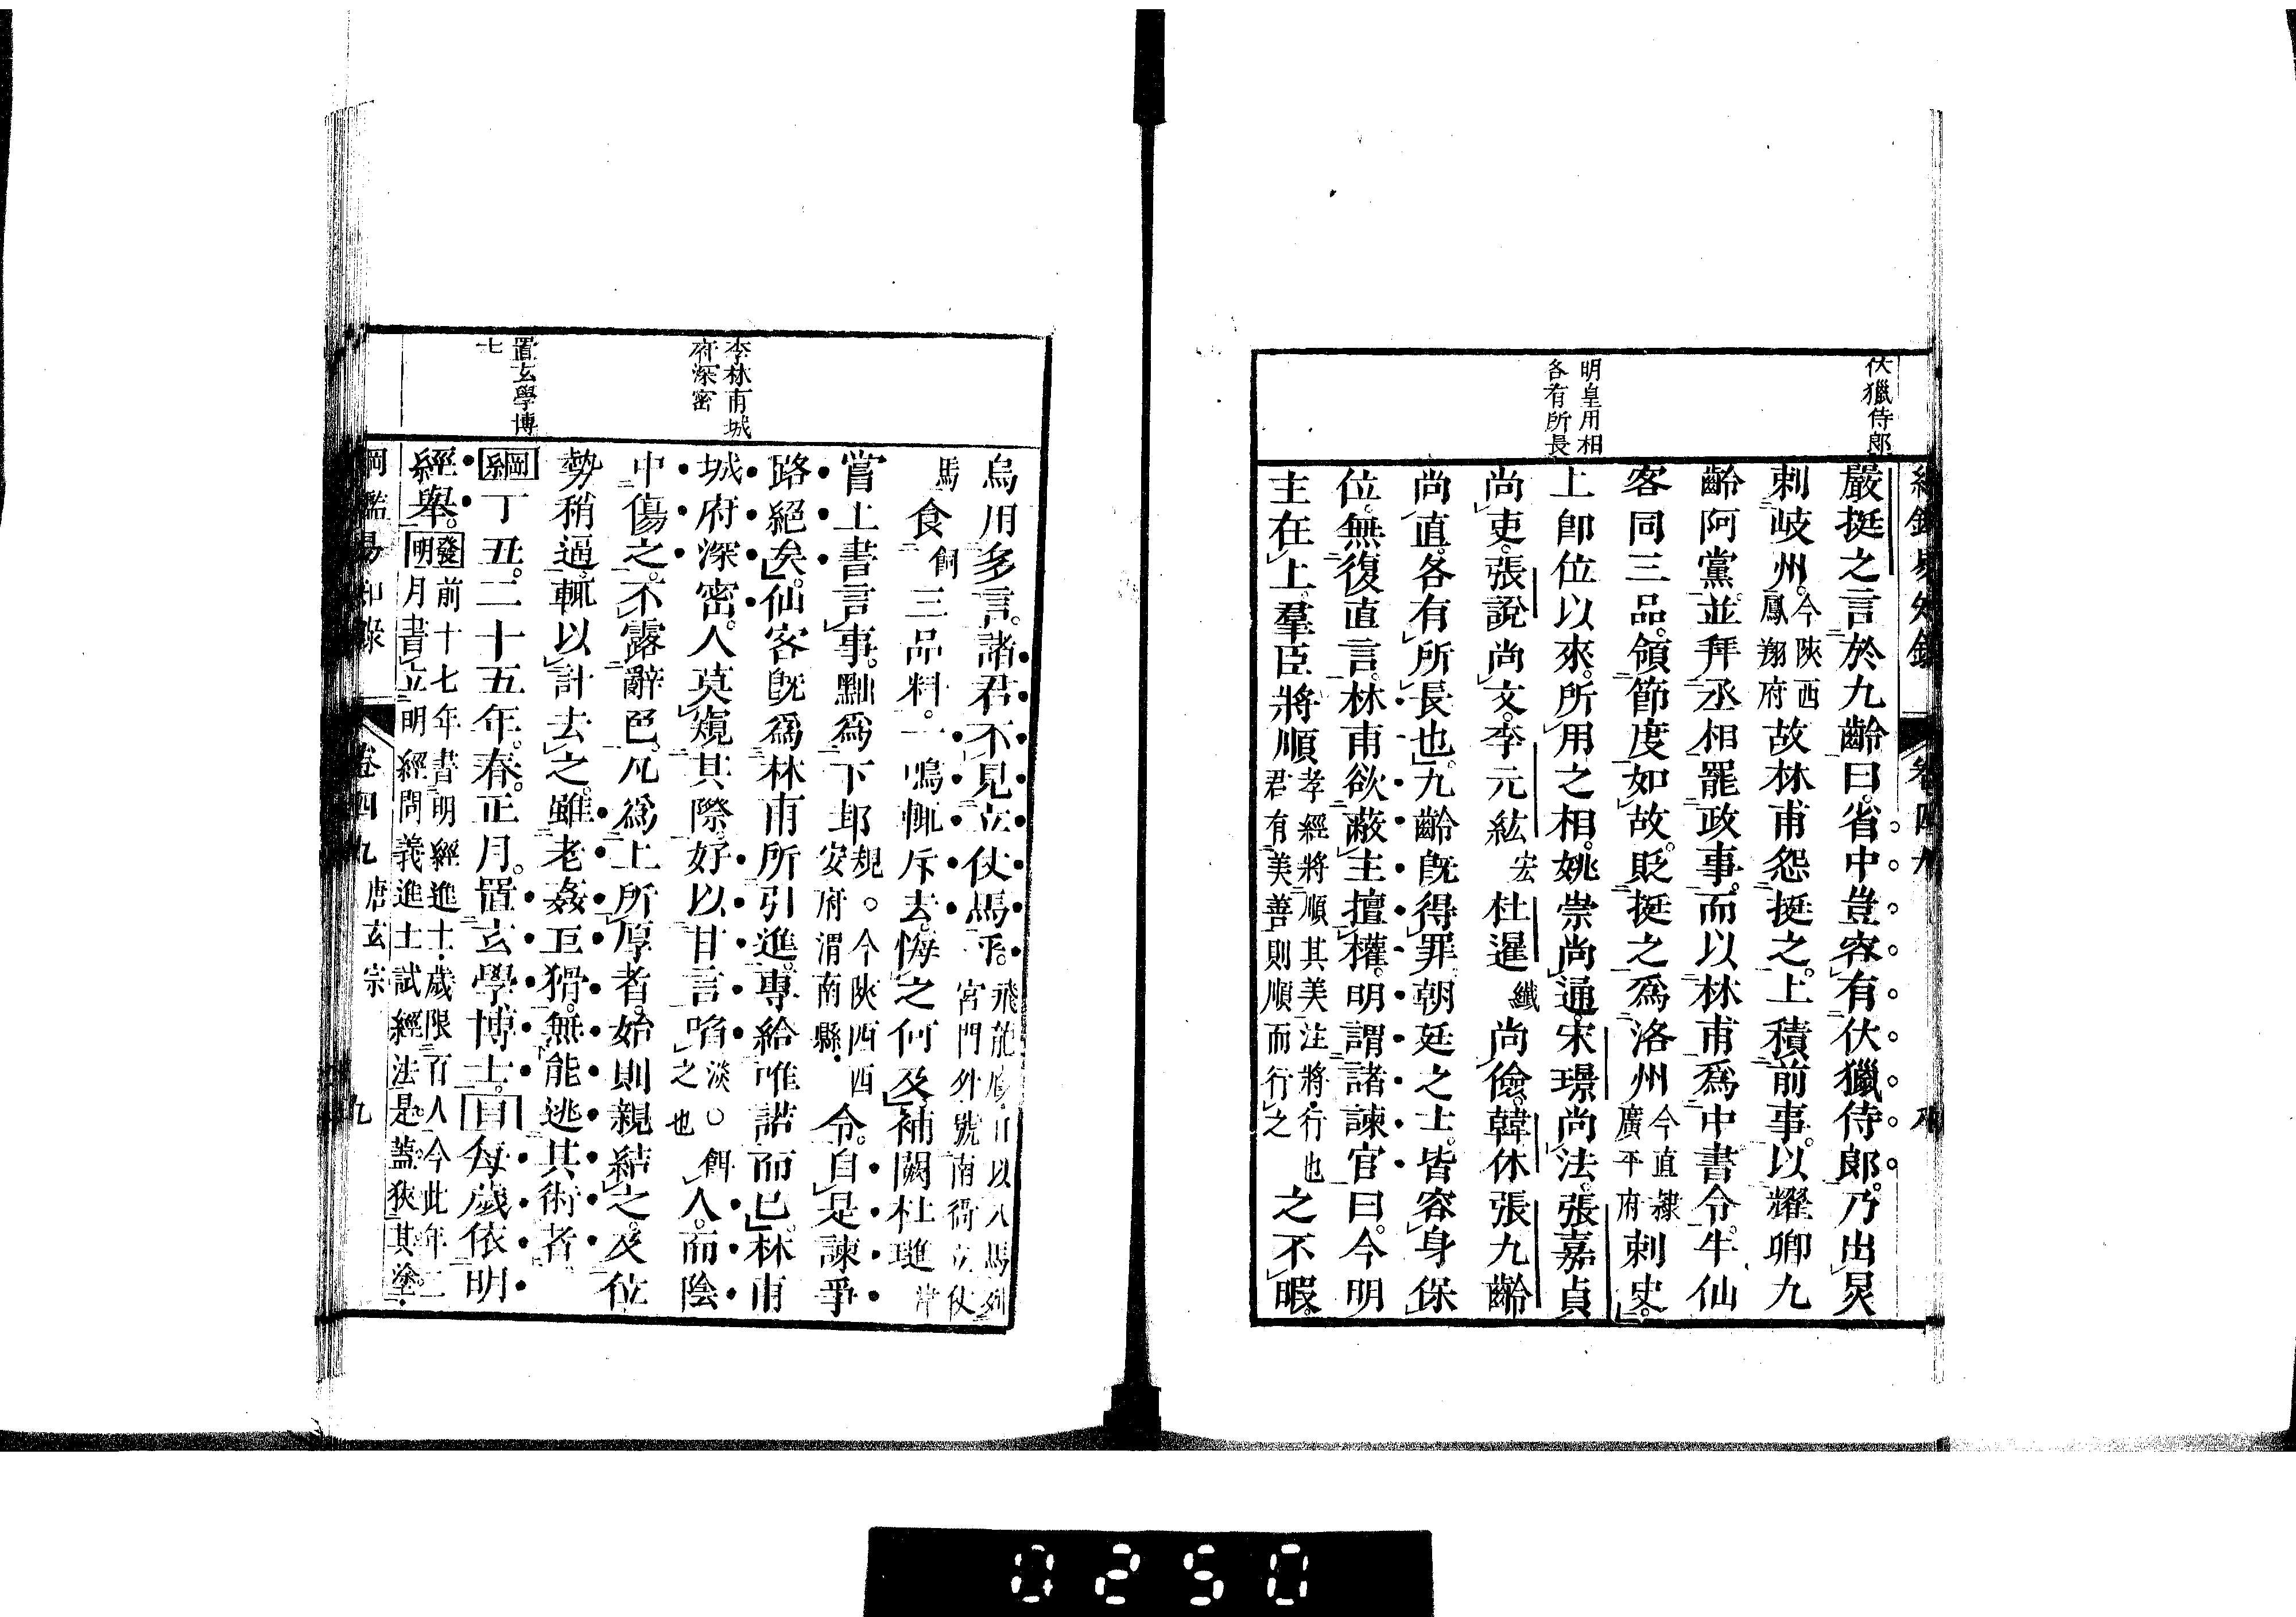 伏獵侍郎
嚴挺之言於九齡曰。省中豈容有伏獵侍郎。乃出炅
刺岐州。今陝西鳳翔府故林甫怨挺之。上積前事。以耀卿九
齡阿黨。並拜丞相罷政事。而以林甫爲中書令。牛仙
客同三品。領節度如故。貶挺之爲洛州今直隸廣平府刺史。
明皇用相
各有所長
上卽位以來。所用之相。姚崇尚通。宋璟尚法。張嘉貞
尚吏。張說尚文。李元紘宏杜暹纖尚儉。韓休張九齡
尚直。各有所長也。九齡旣得罪。朝廷之士。皆容身保
位。無復直言。林甫欲蔽主擅權。明謂諸諫官曰。今明
主在上。羣臣將順孝經將順其美注將行也君有美善則順而行之之不暇。
烏用多言。諸君不見立仗馬乎。飛龍廄日以八馬列宮門外號南衙立仗
馬食飼三品料。一鳴輒斥去。悔之何及。補闕杜璡津
嘗上書言事。黜爲下邽規○今陝西西安府渭南縣令。自是諫爭
路絕矣。仙客旣爲林甫所引進。專給唯諾而已。林甫
李林甫城
府深密
城府深密。人莫窺其際。好以甘言啗淡○餌之也人。而陰
中傷之。不露辭色。凡爲上所厚者。始則親結之。及位
勢稍逼。輒以計去之。雖老姦巨猾。無能逃其術者
置玄學博
士
綱紀丁丑。二十五年。春。正月。置玄學博士。目每歲依明
經舉。發明前十七年書明經進士歲限百人今此年二月書立明經問義進士試經法是蓋狹其塗
綱鑑易知錄 卷四九 唐玄宗 九
0250